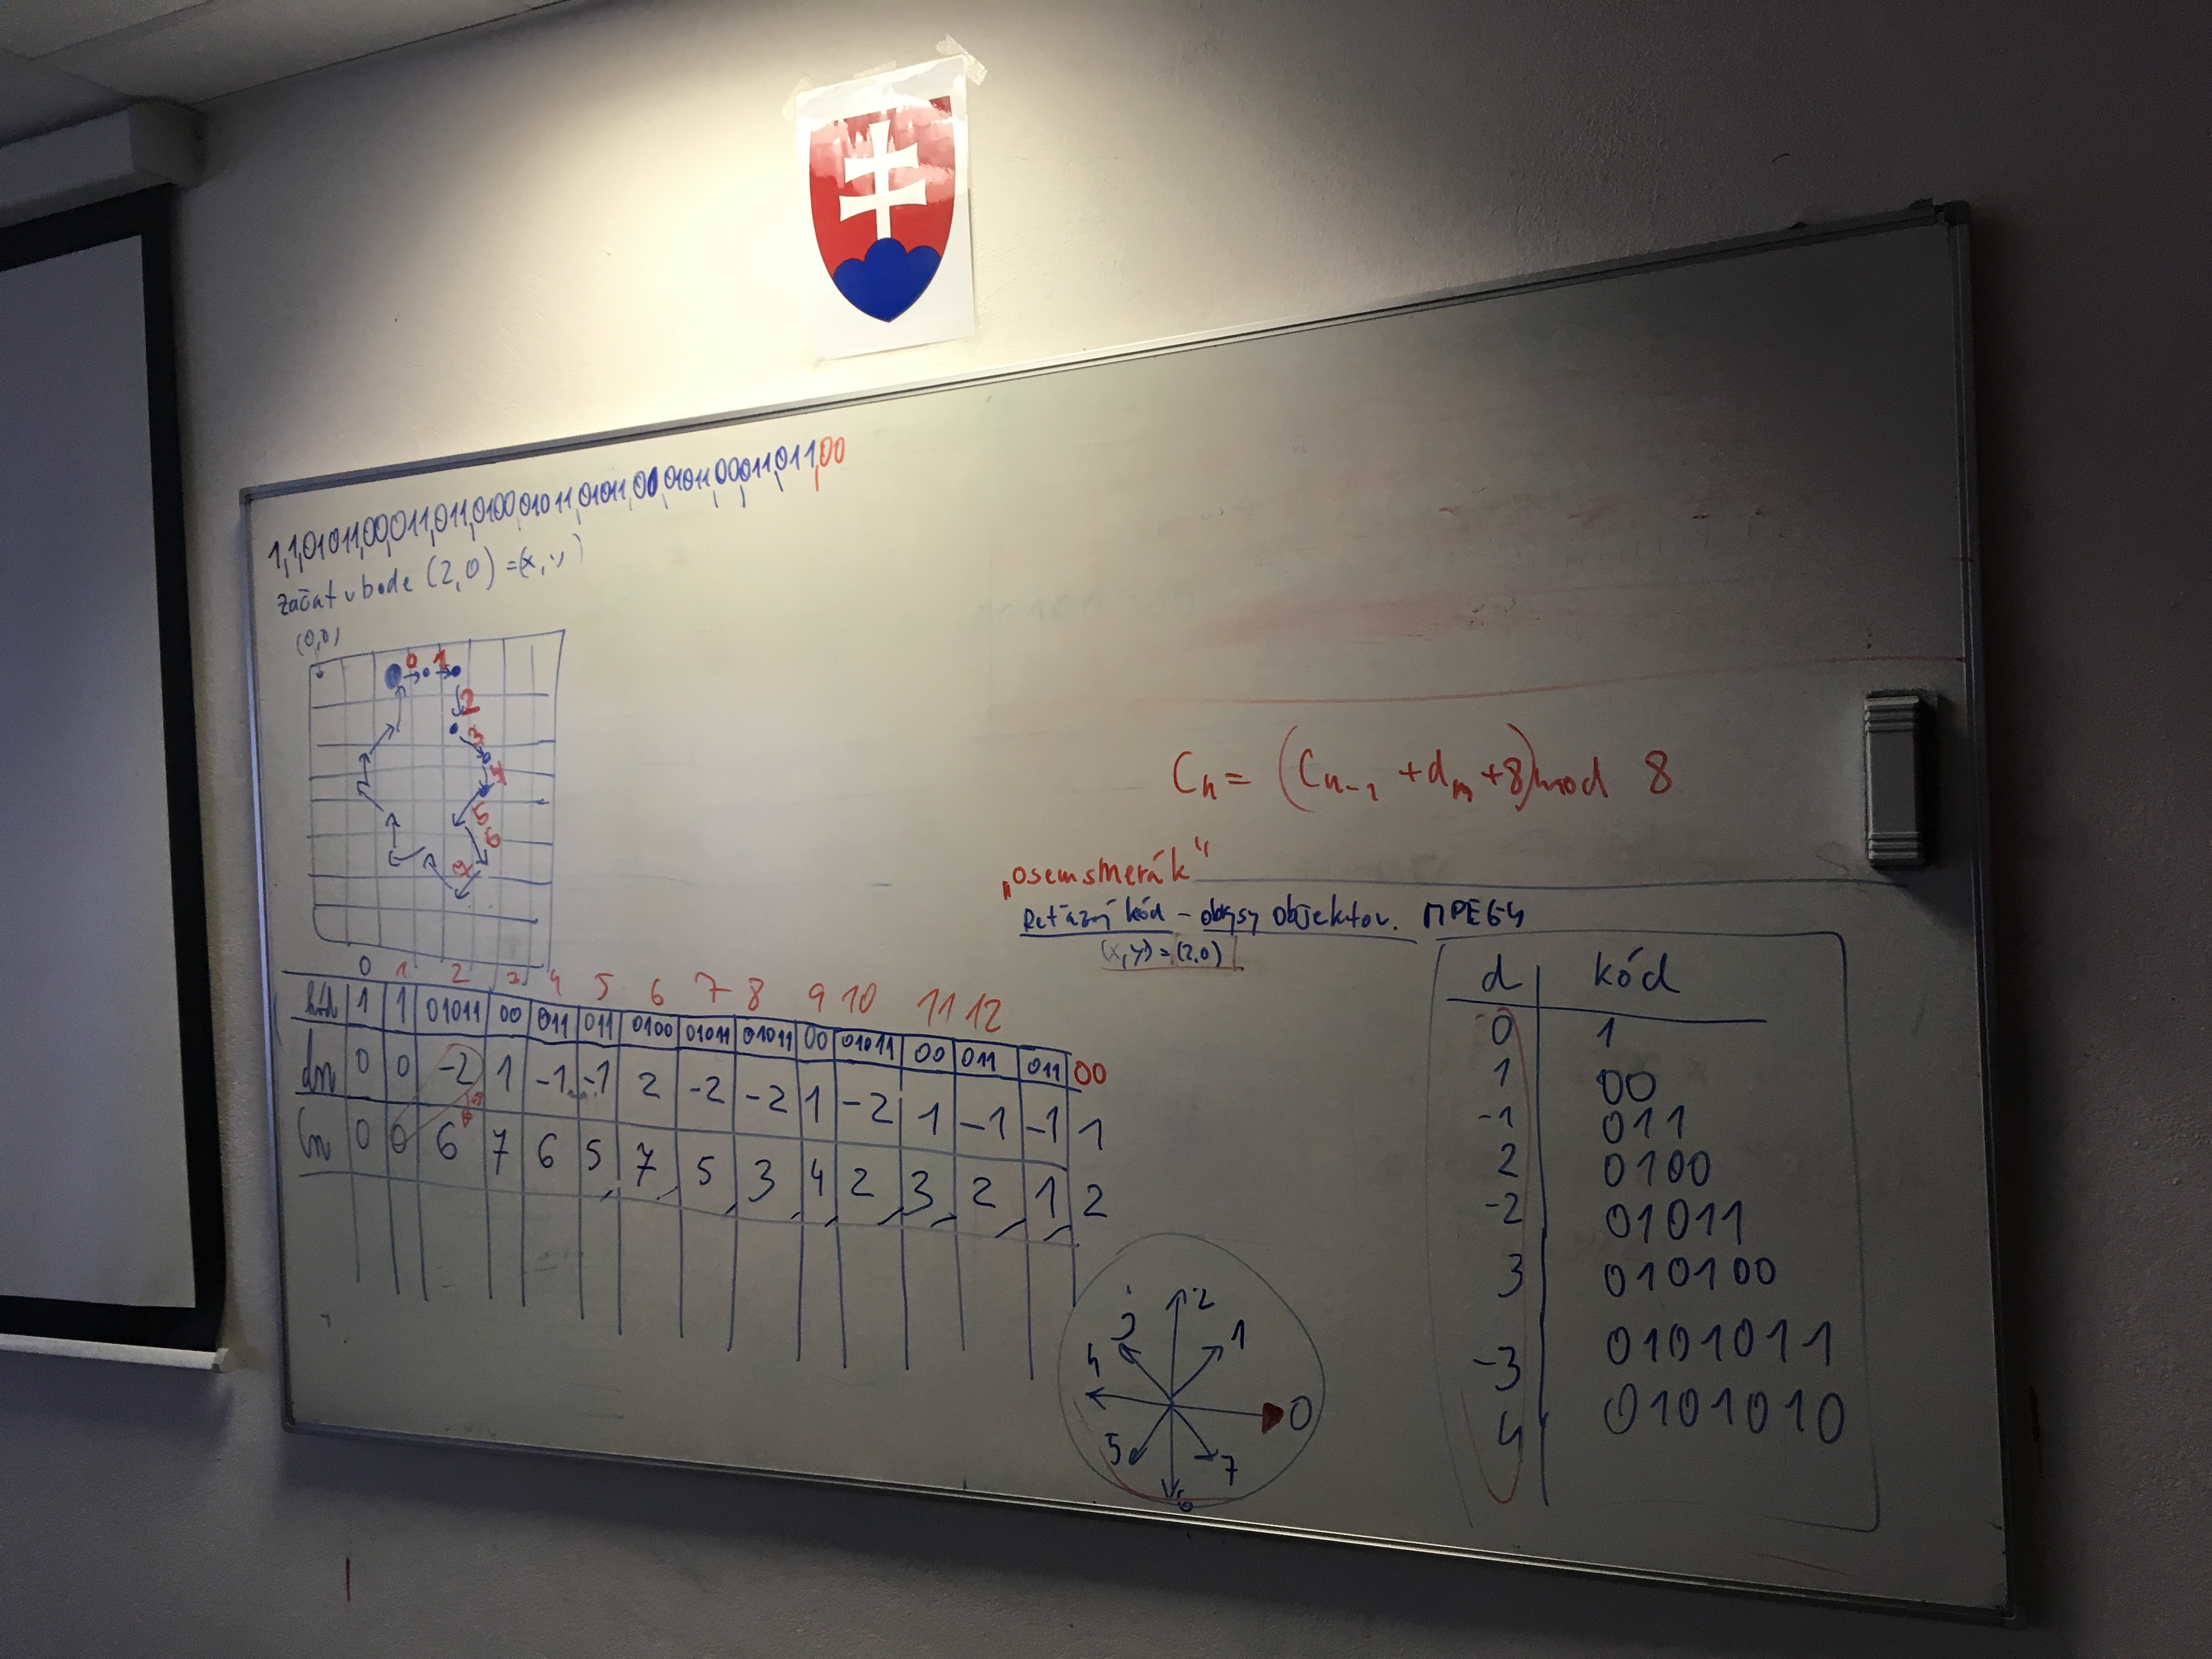 1,1,01011,00,011,011,0100,01011,01011,00,01011,00,011,011,00
začať v bode (2,0) = (x,y)
(0,0)
0 1
2
3
5
6
C_n = (C_{n-1} + d_n + 8) mod 8
„osemsmerák"
Reťazový kód - obrysy objektov. MPEG4
(x,y) = (2,0)
0 1 2 3 4 5 6 7 8 9 10 11 12
kód 1 1 01011 00 011 011 0100 01011 01011 00 01011 00 011 011 00
dn 0 0 -2 1 -1 -1 2 -2 -2 1 -2 1 -1 -1 1
Cn 0 0 6 7 6 5 7 5 3 4 2 3 2 1 2
d kód
0 1
1 00
-1 011
2 0100
-2 01011
3 010100
-3 0101011
4 0101010
3 2 1
4 0
5 6 7